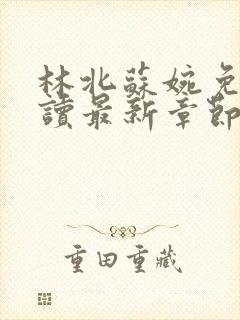 林北蘇婉免
讀最新章節
重田重藏